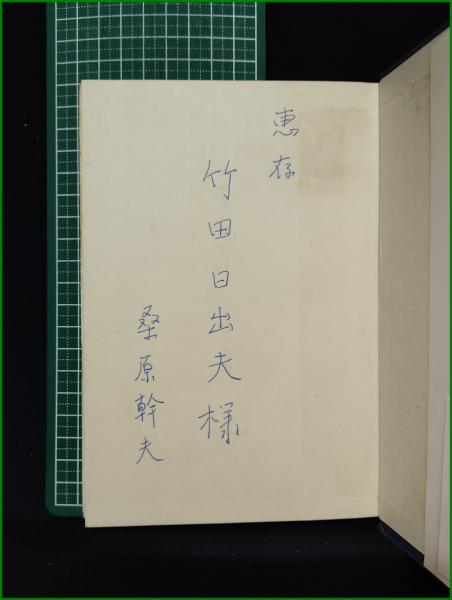 恵存
竹田日出夫様
桑原幹夫